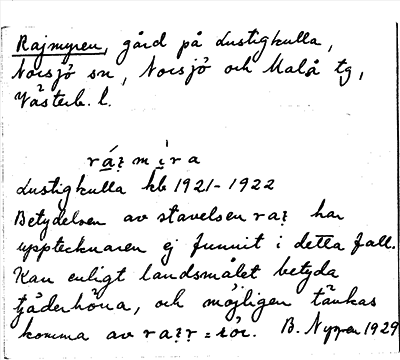 Rajmyren, gård på Lustigkulla,
Norsjö sn, Norsjö och Malå tg,
Västerb. l.
ráʒ mìra
Lustigkulla kb 1921-1922
Betydelsen av stavelsen raʒ har
upptecknaren ej funnit i detta fall.
Kan enligt landsmålet betyda
tjäderhöna, och möjligen tänkas
komma av raʒr =
B. Nyrén 1929